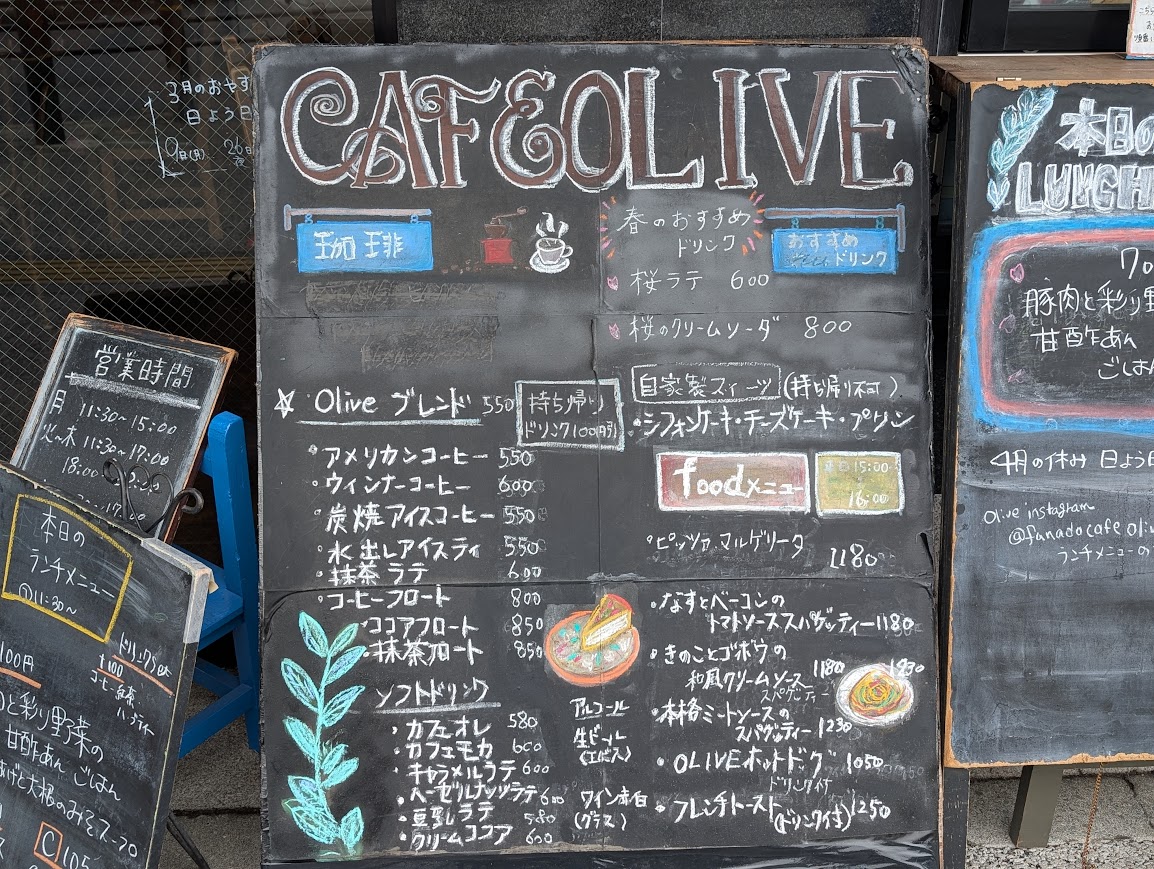 CAFE OLIVE
珈琲
春のおすすめ
ドリンク
おすすめ
ドリンク
桜ラテ 600
桜のクリームソーダ 800
☆ Olive ブレンド 550
持ち帰り
ドリンク100円引
・アメリカンコーヒー 550
・ウィンナーコーヒー 600
・炭焼アイスコーヒー 550
・水出しアイスティ 550
・抹茶ラテ 600
・コーヒーフロート 800
・ココアフロート 850
・抹茶フロート 850
ソフトドリンク
・カフェオレ 580
・カフェモカ 600
・キャラメルラテ 600
・ヘーゼルナッツラテ 600
・豆乳ラテ 580
・クリームココア 600
アルコール
生ビール
(エビス)
ワイン赤白
(グラス)
自家製スィーツ (持ち帰り不可)
・シフォンケーキ・チーズケーキ・プリン
foodメニュー
15:00
16:00
・ピッツァ マルゲリータ
1180
・なすとベーコンの
トマトソーススパゲッティー 1180
・きのことゴボウの
和風クリームソース 1180
スパゲッティー
・本格ミートソースの
スパゲッティー 1230
・OLIVEホットドッグ 1050
ドリンク付
・フレンチトースト(ドリンク付) 1250
3月のおやす
日よう日
9日(月) 26日
夜
営業時間
月 11:30~15:00
火~木 11:30~17:00
18:00
17:00
本日の
ランチメニュー
11:30~
ドリンクセット
¥100
コーヒー 紅茶
ハーブティー
100円
と彩り野菜の
甘酢あん ごはん
あげと大根のみそスープ
C 105
本日の
LUNCH
豚肉と彩り野
甘酢あん
ごはん
4月の休み 日よう日
Olive instagram
@funadocafe oliv
ランチメニューの